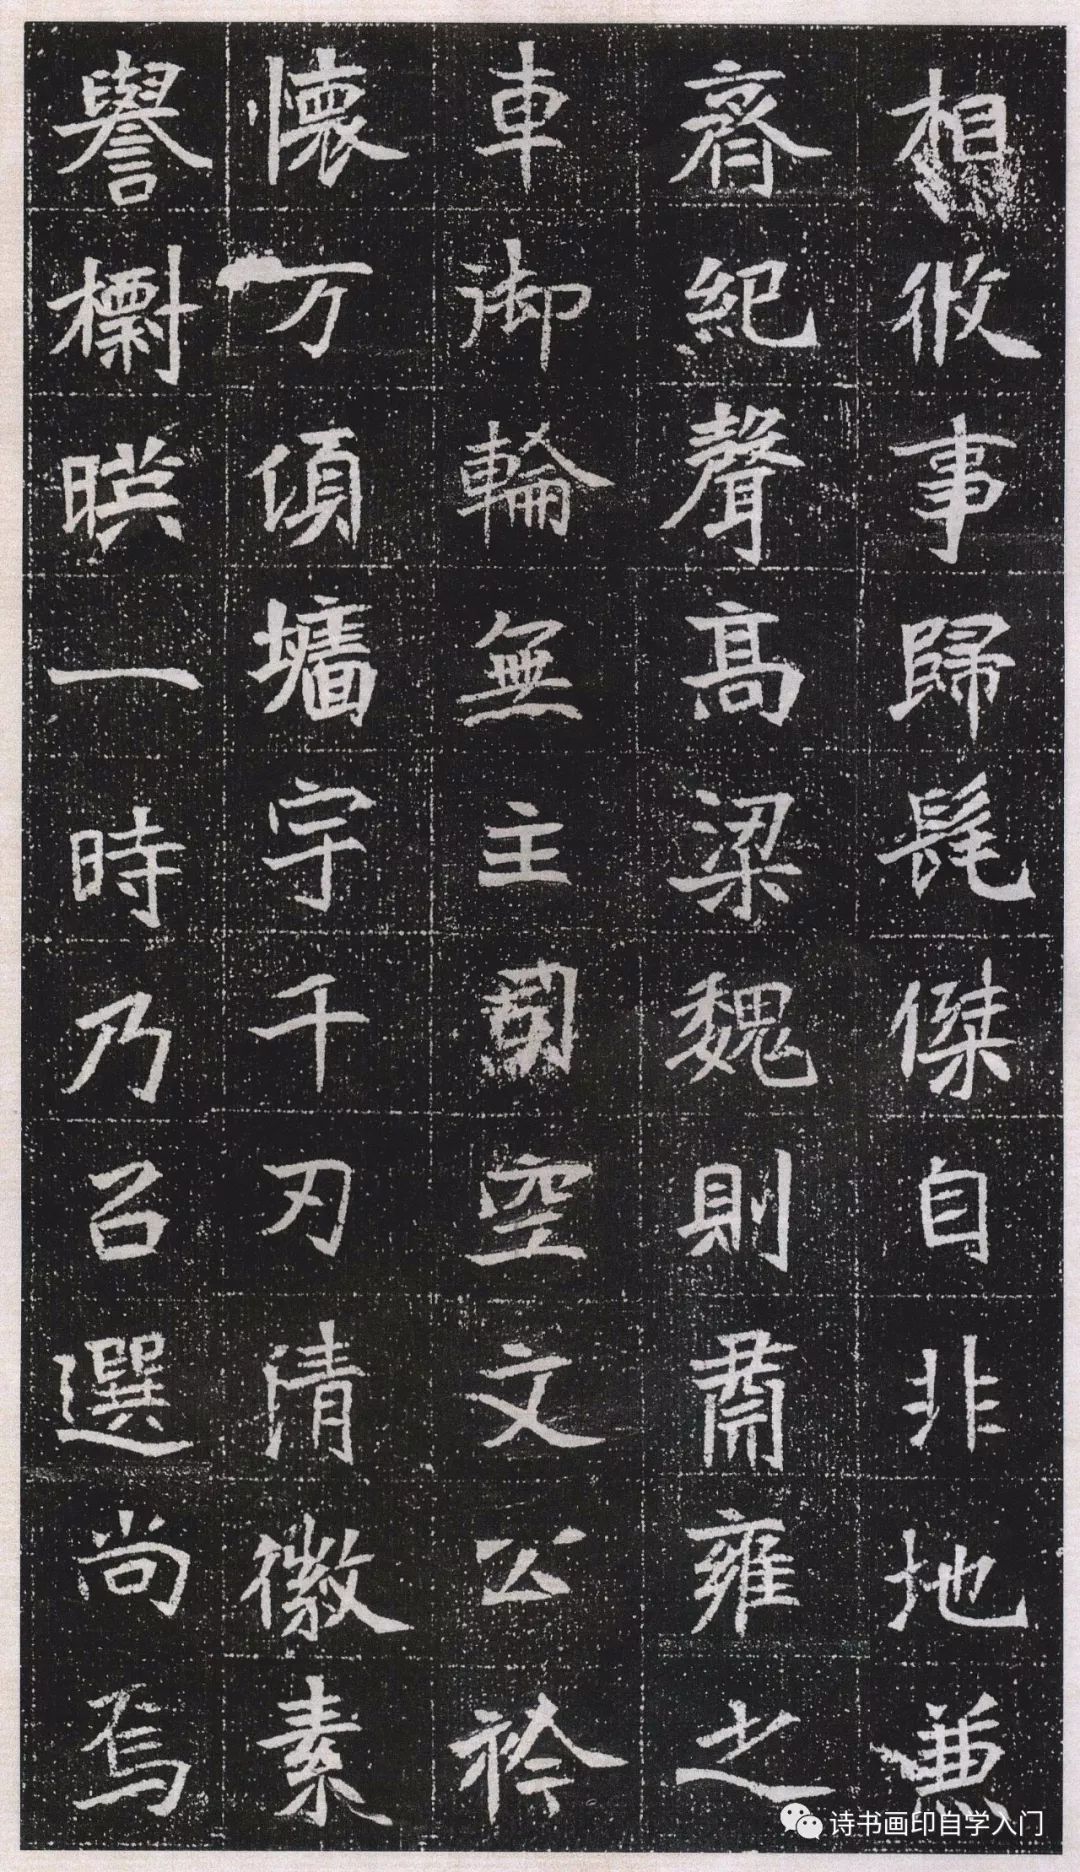 相攸事歸髦傑自非地兼
齊紀聲髙梁魏則肅雍之
車御輪無主閫空文公衿
懷万頃墻宇千刃清徽素
譽檦暎一時乃召選尚焉
诗书画印自学入门